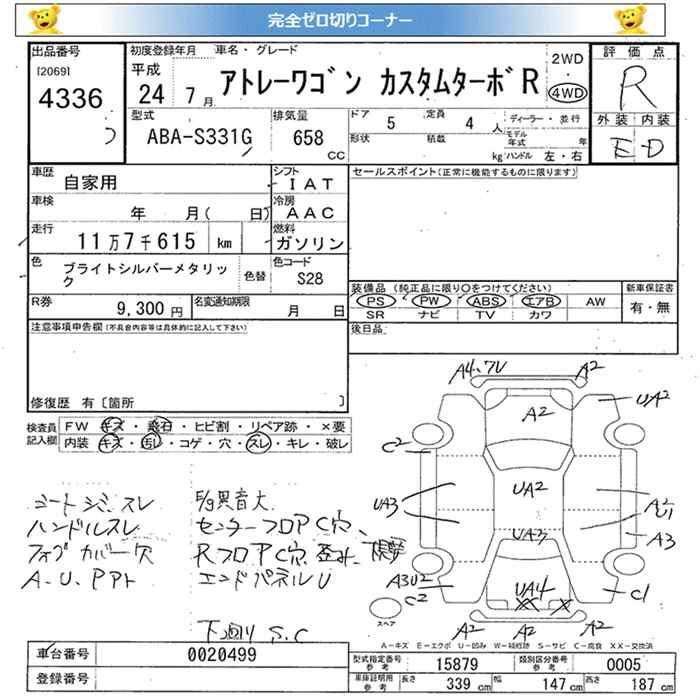 完全ゼロ切りコーナー
出品番号 初度登録年月 車名・グレード 評価点
[2069] 平成 2WD
4336 24 7月 アトレーワゴン カスタムターボR 4WD R
型式 排気量 ドア 5 定員 4人 ディーラー・並行 外装 内装
ABA-S331G 658 cc 形状 積載 kg モデル年式 年 ハンドル 左・右 E D
車歴 自家用 シフト IAT セールスポイント(正常に機能するものに限ります)
車検 年 月( 日) 冷房 AAC
走行 11万7千615 km 燃料 ガソリン
色 ブライトシルバーメタリック 色替 色コード S28
装備品(純正品に限り○をつけてください) 新車保証書
R券 9,300円 名変通知期限 月 日 PS PW ABS エアB AW 有・無
SR ナビ TV カワ
注意事項申告欄(不具合内容等は具体的に記入して下さい) 後日品
修復歴 有〔箇所 〕
検査員記入欄 FW キズ・飛石・ヒビ割・リペア跡・×要
内装 キズ・汚レ・コゲ・穴・スレ・キレ・破レ
A4、ワレ A2
A2 UA2
C2
UA2
UA3 A2 U1
UA3 A3
A3U2 UA4 C1
C2
A2 A2 A2
スペア
シートシミ、スレ E/g異音大
ハンドルスレ センターフロアC穴、
フォグカバー欠 RフロアC穴
A.U.PPト エンドパネルU
下廻り S.C
A-キズ E-エクボ U-凹み W-補修跡 S-サビ C-腐食 XX-交換済
車台番号 0020499 型式指定番号 参考 15879 類別区分番号 参考 0005
登録番号 車庫証明用 参考 長さ 339 cm 幅 147 cm 高さ 187 cm